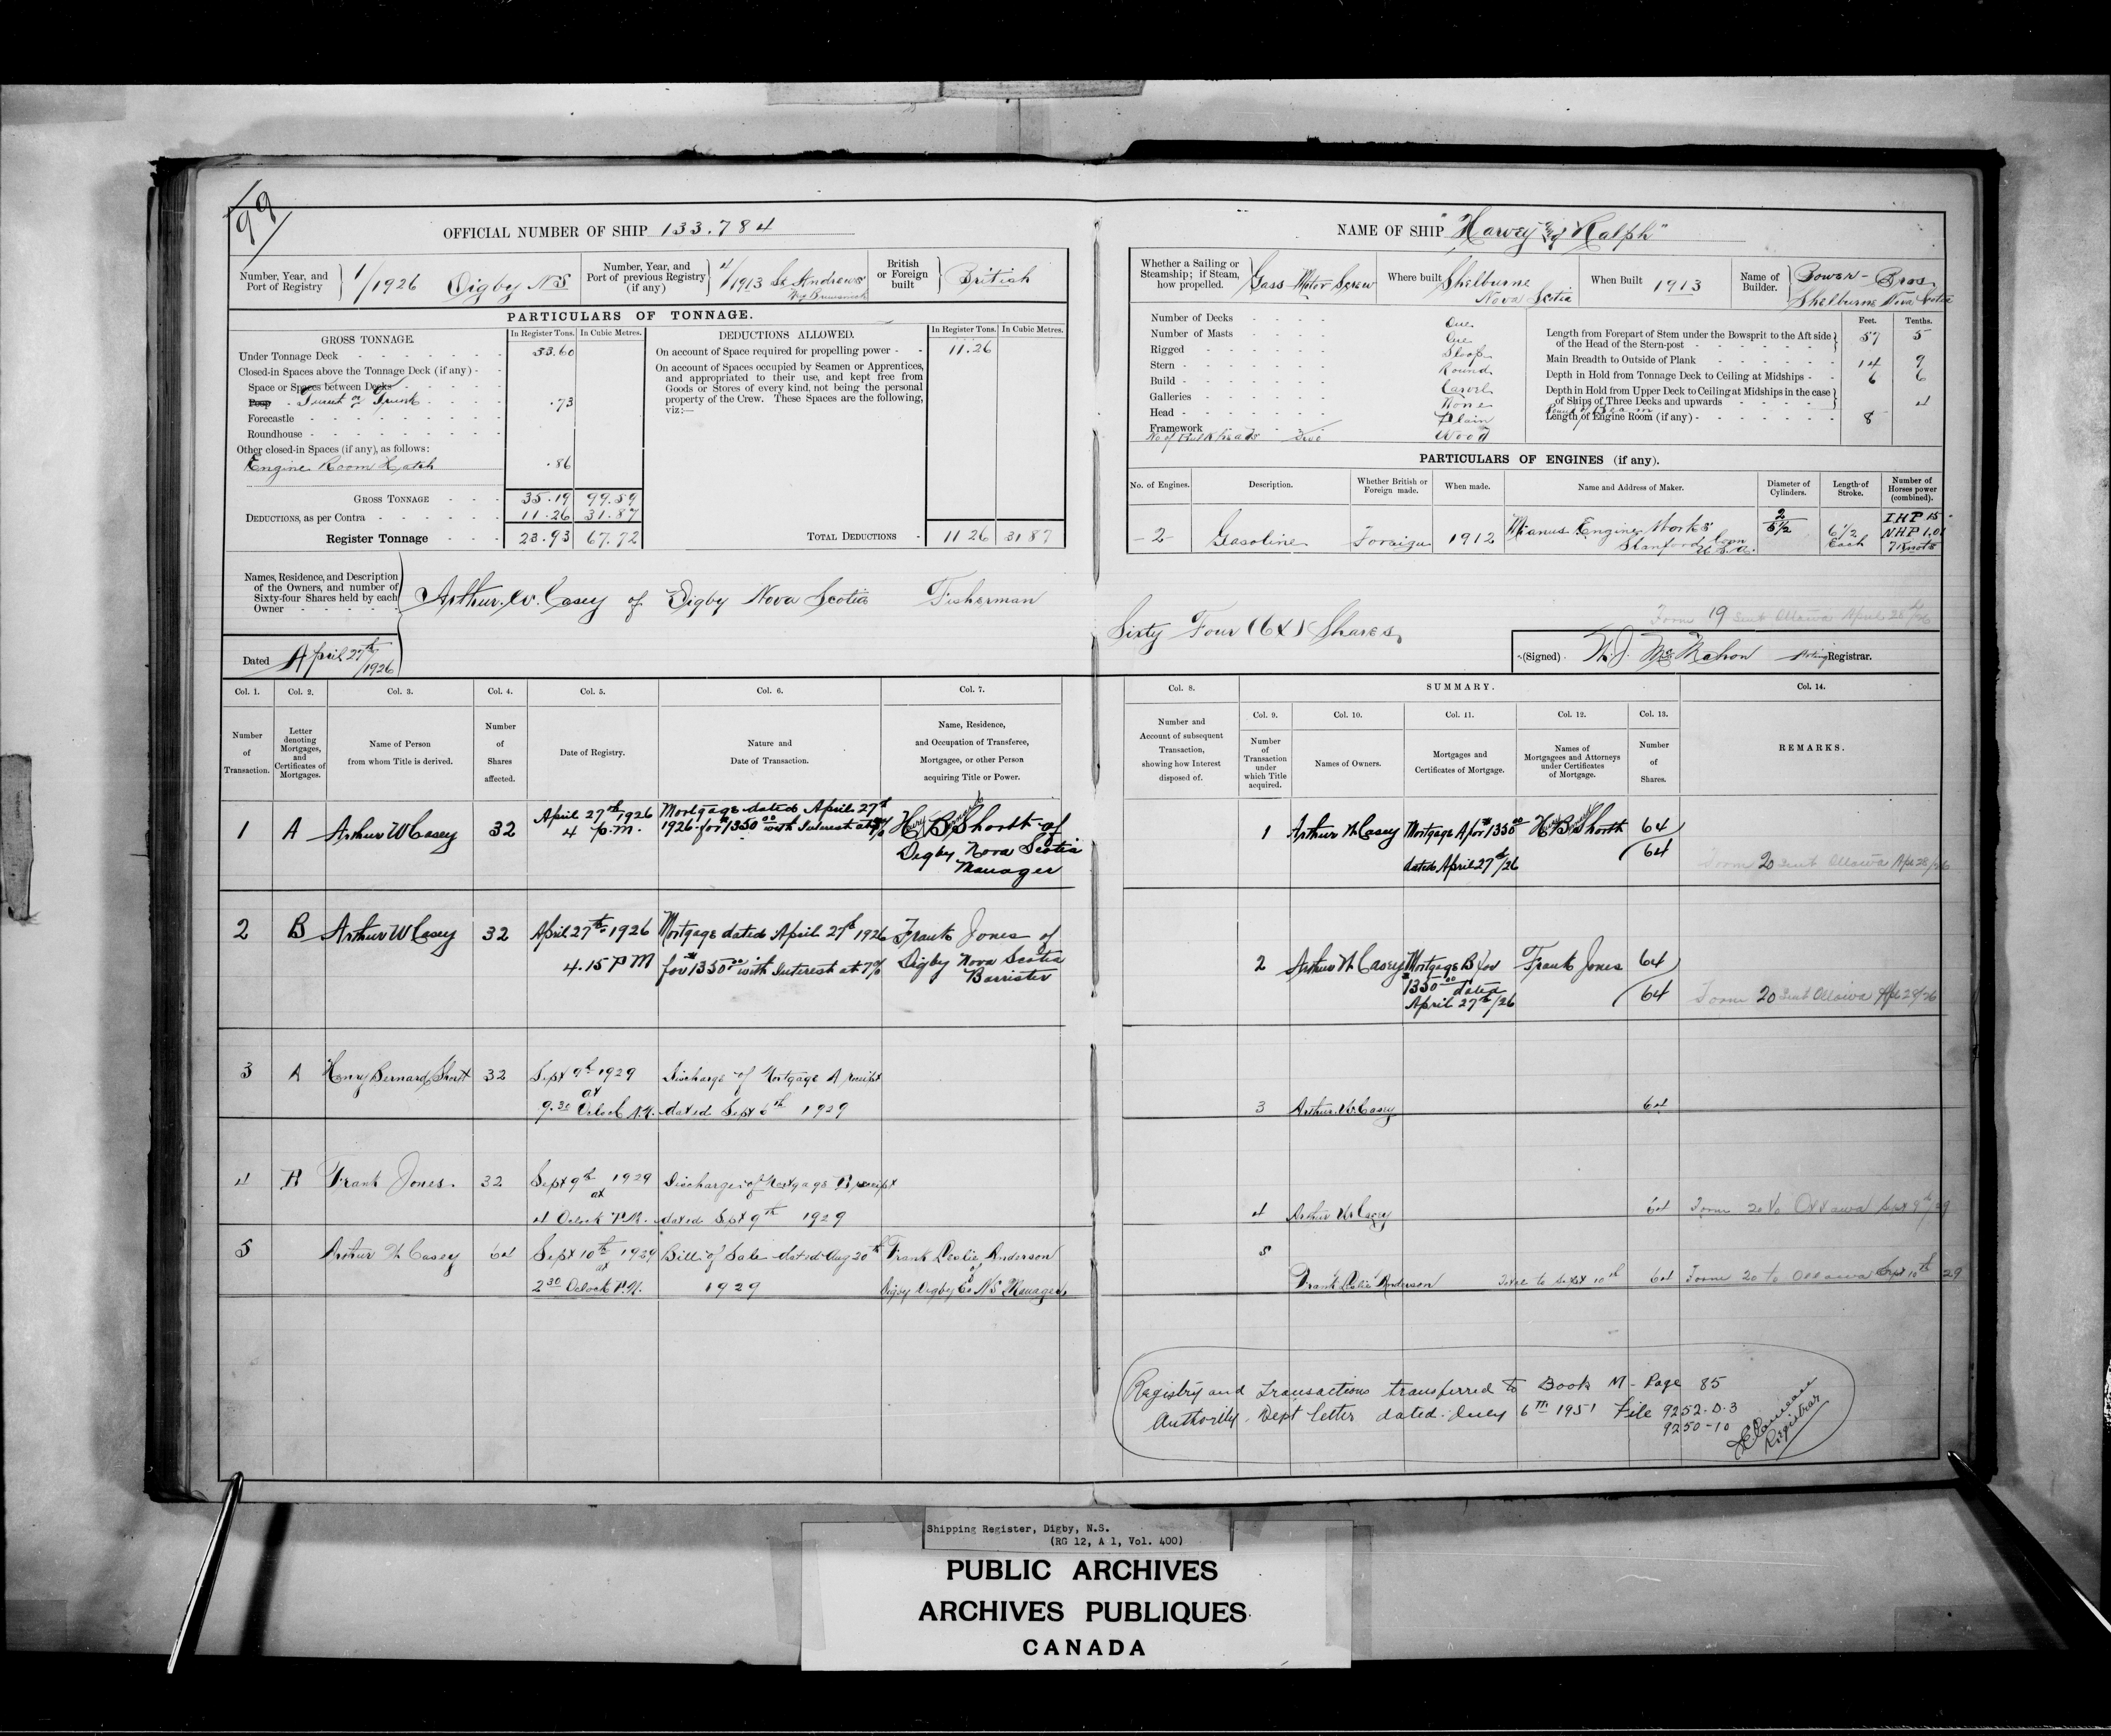 99
OFFICIAL NUMBER OF SHIP 133.784
Number, Year, and Port of Registry 1/1926 Digby NS
Number, Year, and Port of previous Registry (if any) 4/1913 St Andrews New Brunswick
British or Foreign built British
PARTICULARS OF TONNAGE.
GROSS TONNAGE. In Register Tons. In Cubic Metres.
Under Tonnage Deck 33.60
Closed-in Spaces above the Tonnage Deck (if any)
Space or Spaces between Decks
Poop Turret or Trunk .73
Forecastle
Roundhouse
Other closed-in Spaces (if any), as follows:
Engine Room Hatch .86
GROSS TONNAGE 35.19 99.59
DEDUCTIONS, as per Contra 11.26 31.87
Register Tonnage 23.93 67.72
DEDUCTIONS ALLOWED. In Register Tons. In Cubic Metres.
On account of Space required for propelling power 11.26
On account of Spaces occupied by Seamen or Apprentices,
and appropriated to their use, and kept free from
Goods or Stores of every kind, not being the personal
property of the Crew. These Spaces are the following,
viz:—
TOTAL DEDUCTIONS 11 26 31 87
Names, Residence, and Description
of the Owners, and number of
Sixty-four Shares held by each
Owner
Arthur. W. Casey of Digby Nova Scotia Fisherman
Dated April 27th/1926
NAME OF SHIP "Harvey and Ralph"
Whether a Sailing or Steamship; if Steam, how propelled. Gass Motor Screw
Where built Shelburne Nova Scotia
When Built 1913
Name of Builder. Bower Bros Shelburne Nova Scotia
Number of Decks One
Number of Masts One
Rigged Sloop
Stern Round
Build Carvel
Galleries None
Head Plain
Framework Wood
No of Bulkheads Two
Feet. Tenths.
Length from Forepart of Stem under the Bowsprit to the Aft side
of the Head of the Stern-post 57 5
Main Breadth to Outside of Plank 14 9
Depth in Hold from Tonnage Deck to Ceiling at Midships 6 6
Depth in Hold from Upper Deck to Ceiling at Midships in the case
of Ships of Three Decks and upwards
Round of Beam 4
Length of Engine Room (if any) 8
PARTICULARS OF ENGINES (if any).
No. of Engines. Description. Whether British or Foreign made. When made. Name and Address of Maker. Diameter of Cylinders. Length of Stroke. Number of Horses power (combined).
-2- Gasoline Foreign 1912 Mianus Engine Works Stanford Conn U.S.A. 2 5 1/2 6 1/2 Each IHP 15 NHP 1.01 7 Knots
Form 19 sent Ottawa April 28th/26
Sixty Four (64) Shares
(Signed) W. J. McMahon Acting Registrar.
Col. 1. Col. 2. Col. 3. Col. 4. Col. 5. Col. 6. Col. 7.
Number of Transaction.
Letter denoting Mortgages, and Certificates of Mortgages.
Name of Person from whom Title is derived.
Number of Shares affected.
Date of Registry.
Nature and Date of Transaction.
Name, Residence, and Occupation of Transferee, Mortgagee, or other Person acquiring Title or Power.
1 A Arthur W Casey 32 April 27th 1926 4 p.m. Mortgage dated April 27th 1926 for $1350.00 with Interest at 7% Henry Bernard Shortt of Digby Nova Scotia Manager
2 B Arthur W Casey 32 April 27th 1926 4.15 PM Mortgage dated April 27th 1926 for $1350.00 with Interest at 7% Frank Jones of Digby Nova Scotia Barrister
3 A Henry Bernard Shortt 32 Sept 9th 1929 at 9.30 Oclock A.M. Discharge of Mortgage A receipt dated Sept 6th 1929
4 B Frank Jones 32 Sept 9th 1929 at 4 Oclock P.M. Discharge of Mortgage B receipt dated Sept 9th 1929
5 Arthur W Casey 64 Sept 10th 1929 at 2 30 Oclock P.M. Bill of Sale dated Aug 20th 1929 Frank Leslie Anderson of Digby Digby Co NS Manager
Col. 8. SUMMARY. Col. 14.
Col. 9. Col. 10. Col. 11. Col. 12. Col. 13.
Number and Account of subsequent Transaction, showing how Interest disposed of.
Number of Transaction under which Title acquired.
Names of Owners.
Mortgages and Certificates of Mortgage.
Names of Mortgagees and Attorneys under Certificates of Mortgage.
Number of Shares.
REMARKS.
1 Arthur W Casey Mortgage A for $1350.00 dated April 27th/26 Henry Bernard Shortt 64 64 Form 20 sent Ottawa Apl 28/26
2 Arthur W Casey Mortgage B for $1350.00 dated April 27th/26 Frank Jones 64 64 Form 20 sent Ottawa Apl 28/26
3 Arthur W Casey 64
4 Arthur W Casey 64 Form 20 to Ottawa Sept 9th/29
5 Frank Leslie Anderson Total to Sept 10th 64 Form 20 to Ottawa Sept 10th 29
Registry and Transactions transferred to Book M - Page 85
Authority - Dept letter dated July 6th 1951 File 9252-D-3
9250-10
Registrar
Shipping Register, Digby, N.S.
(RG 12, A 1, Vol. 400)
PUBLIC ARCHIVES
ARCHIVES PUBLIQUES
CANADA